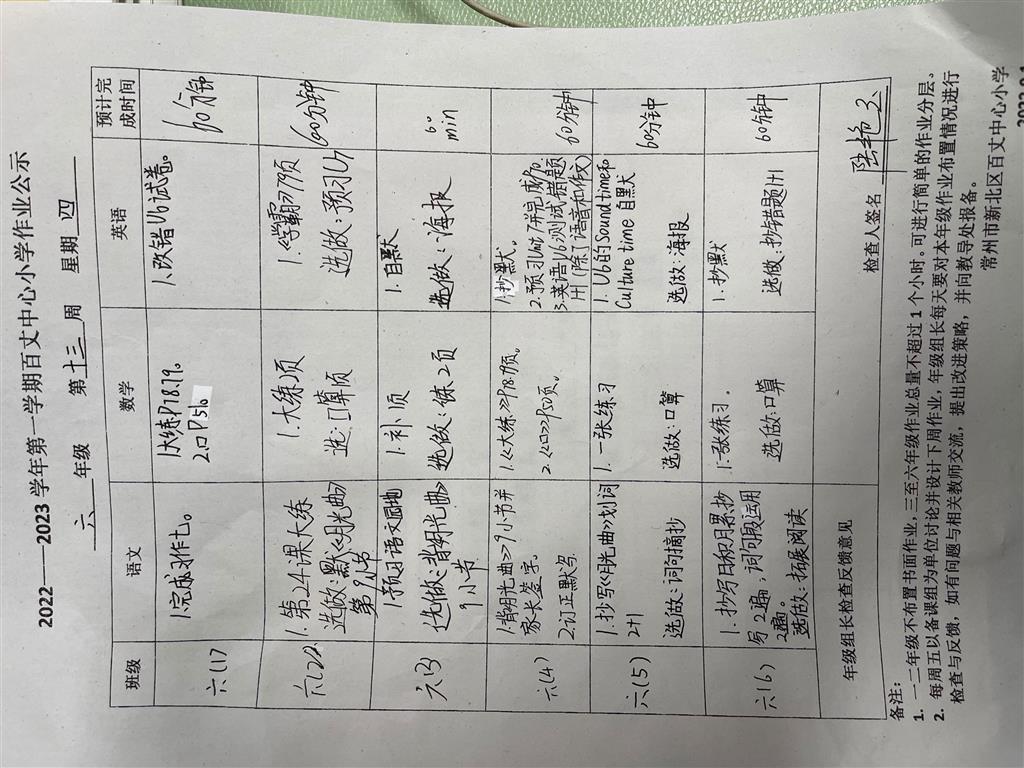 2022——2023 学年第一学期百丈中心小学作业公示
六 年级 第 十三 周 星期 四
班级 语文 数学 英语 预计完成时间
六(1)
1.完成习作七。
1.大练P18.19。
2.口P51。
1.改错U6试卷。
60分钟
六(2)
1.第24课大练
选做:默《月光曲》
第9小节
1.大练1页
选:口算1页
1.《学霸》79页
选做:预习U7
60分钟
六(3)
1.预习语文园地
选做:背《月光曲》
9小节
1.补1页
选做:练2页
1.自默
选做:海报
60
min
六(4)
1.背《月光曲》9小节并
家长签字。
2.订正默写
1.《大练》P18.19页。
2.《口》P50页。
1.抄默。
2.预习Unit7并完成书.
3.英语U6测试错题
60分钟
六(5)
1.抄写《月光曲》划词
2+1
选做:词句摘抄
1.一张练习
选做:口算
1.U6的Sound time和
Culture time 自默
选做:海报
60分钟
六(6)
1.抄写日积月累抄
写2遍,词句段运用
2遍。
选做:拓展阅读
1.一张练习.
选做:口算
1.抄默
选做:抄错题2+1
60分钟
年级组长检查反馈意见 检查人签名
备注:
1. 一二年级不布置书面作业,三至六年级作业总量不超过 1 个小时。可进行简单的作业分层。
2. 每周五以备课组为单位讨论并设计下周作业,年级组长每天要对本年级作业布置情况进行
检查与反馈,如有问题与相关教师交流,提出改进策略,并向教导处报备。
常州市新北区百丈中心小学